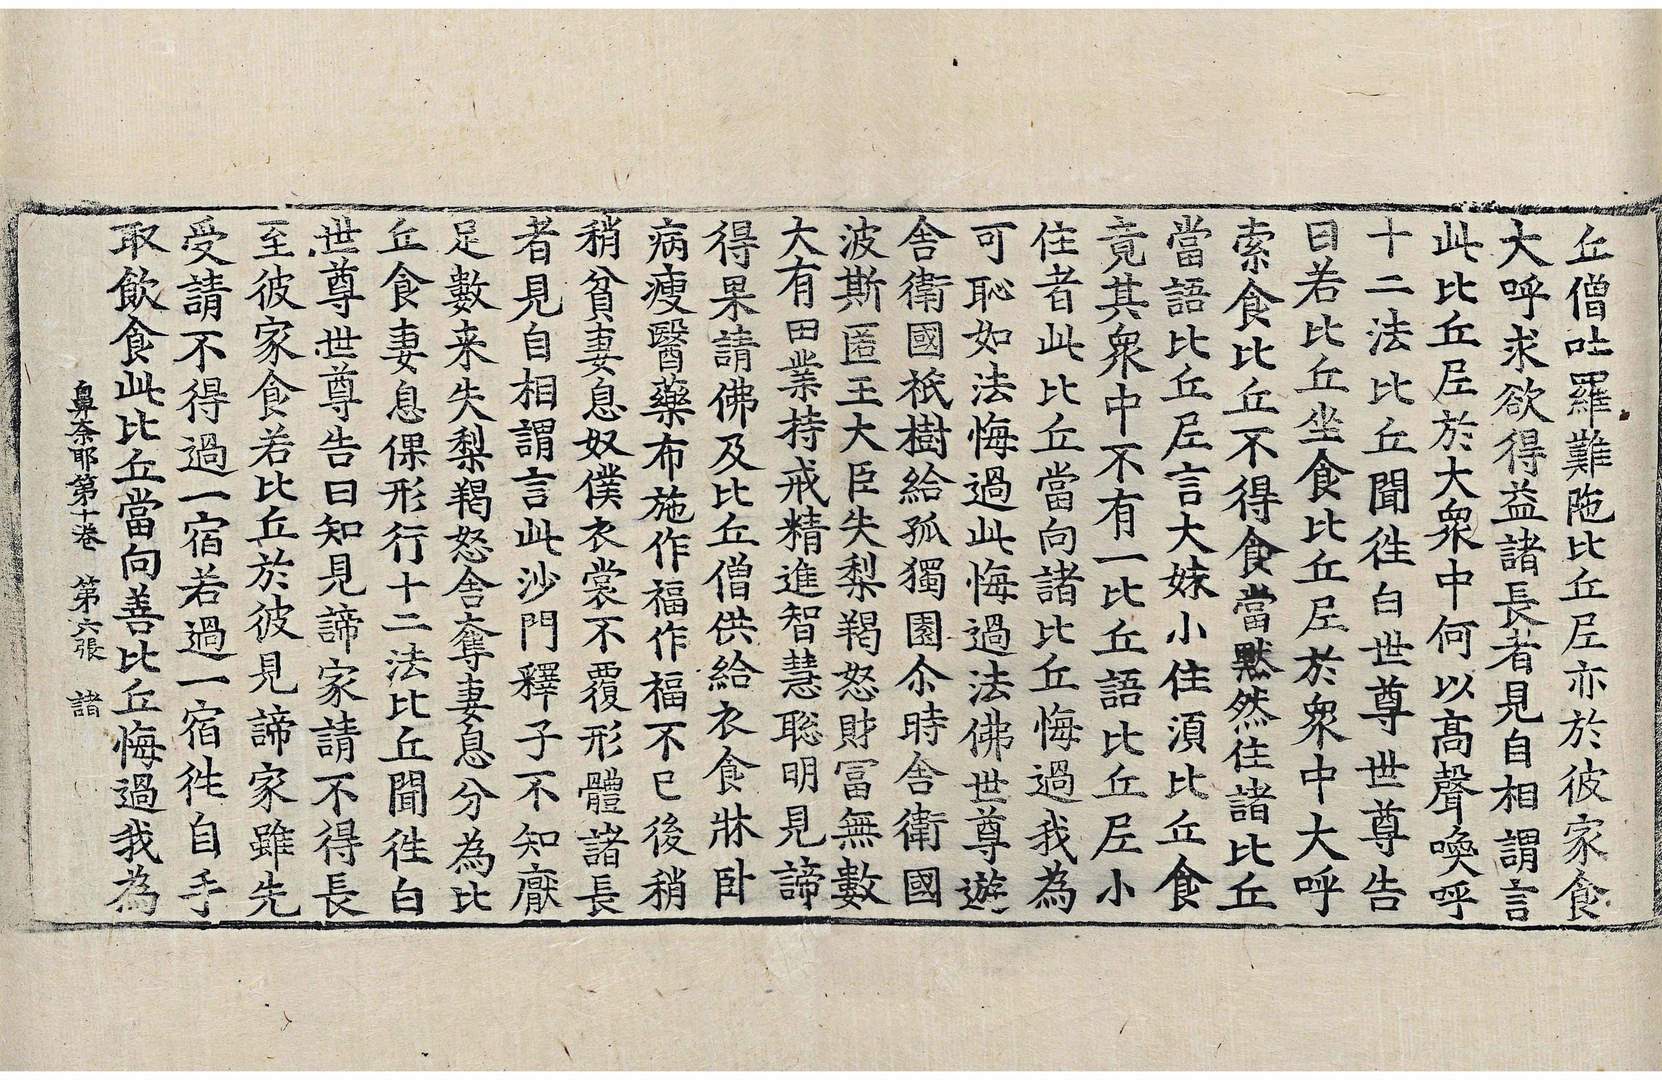 丘僧吐羅難陁比丘尼亦於彼家食
大呼求欲得益諸長者見自相謂言
此比丘尼於大衆中何以高聲喚呼
十二法比丘聞徃白世尊世尊告
曰若比丘坐食比丘尼於衆中大呼
索食比丘不得食當默然住諸比丘
當語比丘尼言大妹小住須比丘食
竟其衆中不有一比丘語比丘尼小
住者此比丘當向諸比丘悔過我為
可恥如法悔過此悔過法佛世尊遊
舍衛國祇樹給孤獨園尒時舍衛國
波斯匿王大臣失梨羯怒財冨無數
大有田業持戒精進智慧聡明見諦
得果請佛及比丘僧供給衣食牀卧
病瘦醫藥布施作福作福不已後稍
稍貧妻息奴僕衣裳不覆形體諸長
者見自相謂言此沙門釋子不知厭
足數来失梨羯怒舍奪妻息分為比
丘食妻息倮形行十二法比丘聞徃白
世尊世尊告曰知見諦家請不得長
至彼家食若比丘於彼見諦家雖先
受請不得過一宿若過一宿徃自手
取飲食此比丘當向善比丘悔過我為
鼻奈耶第十卷　第六張　諸